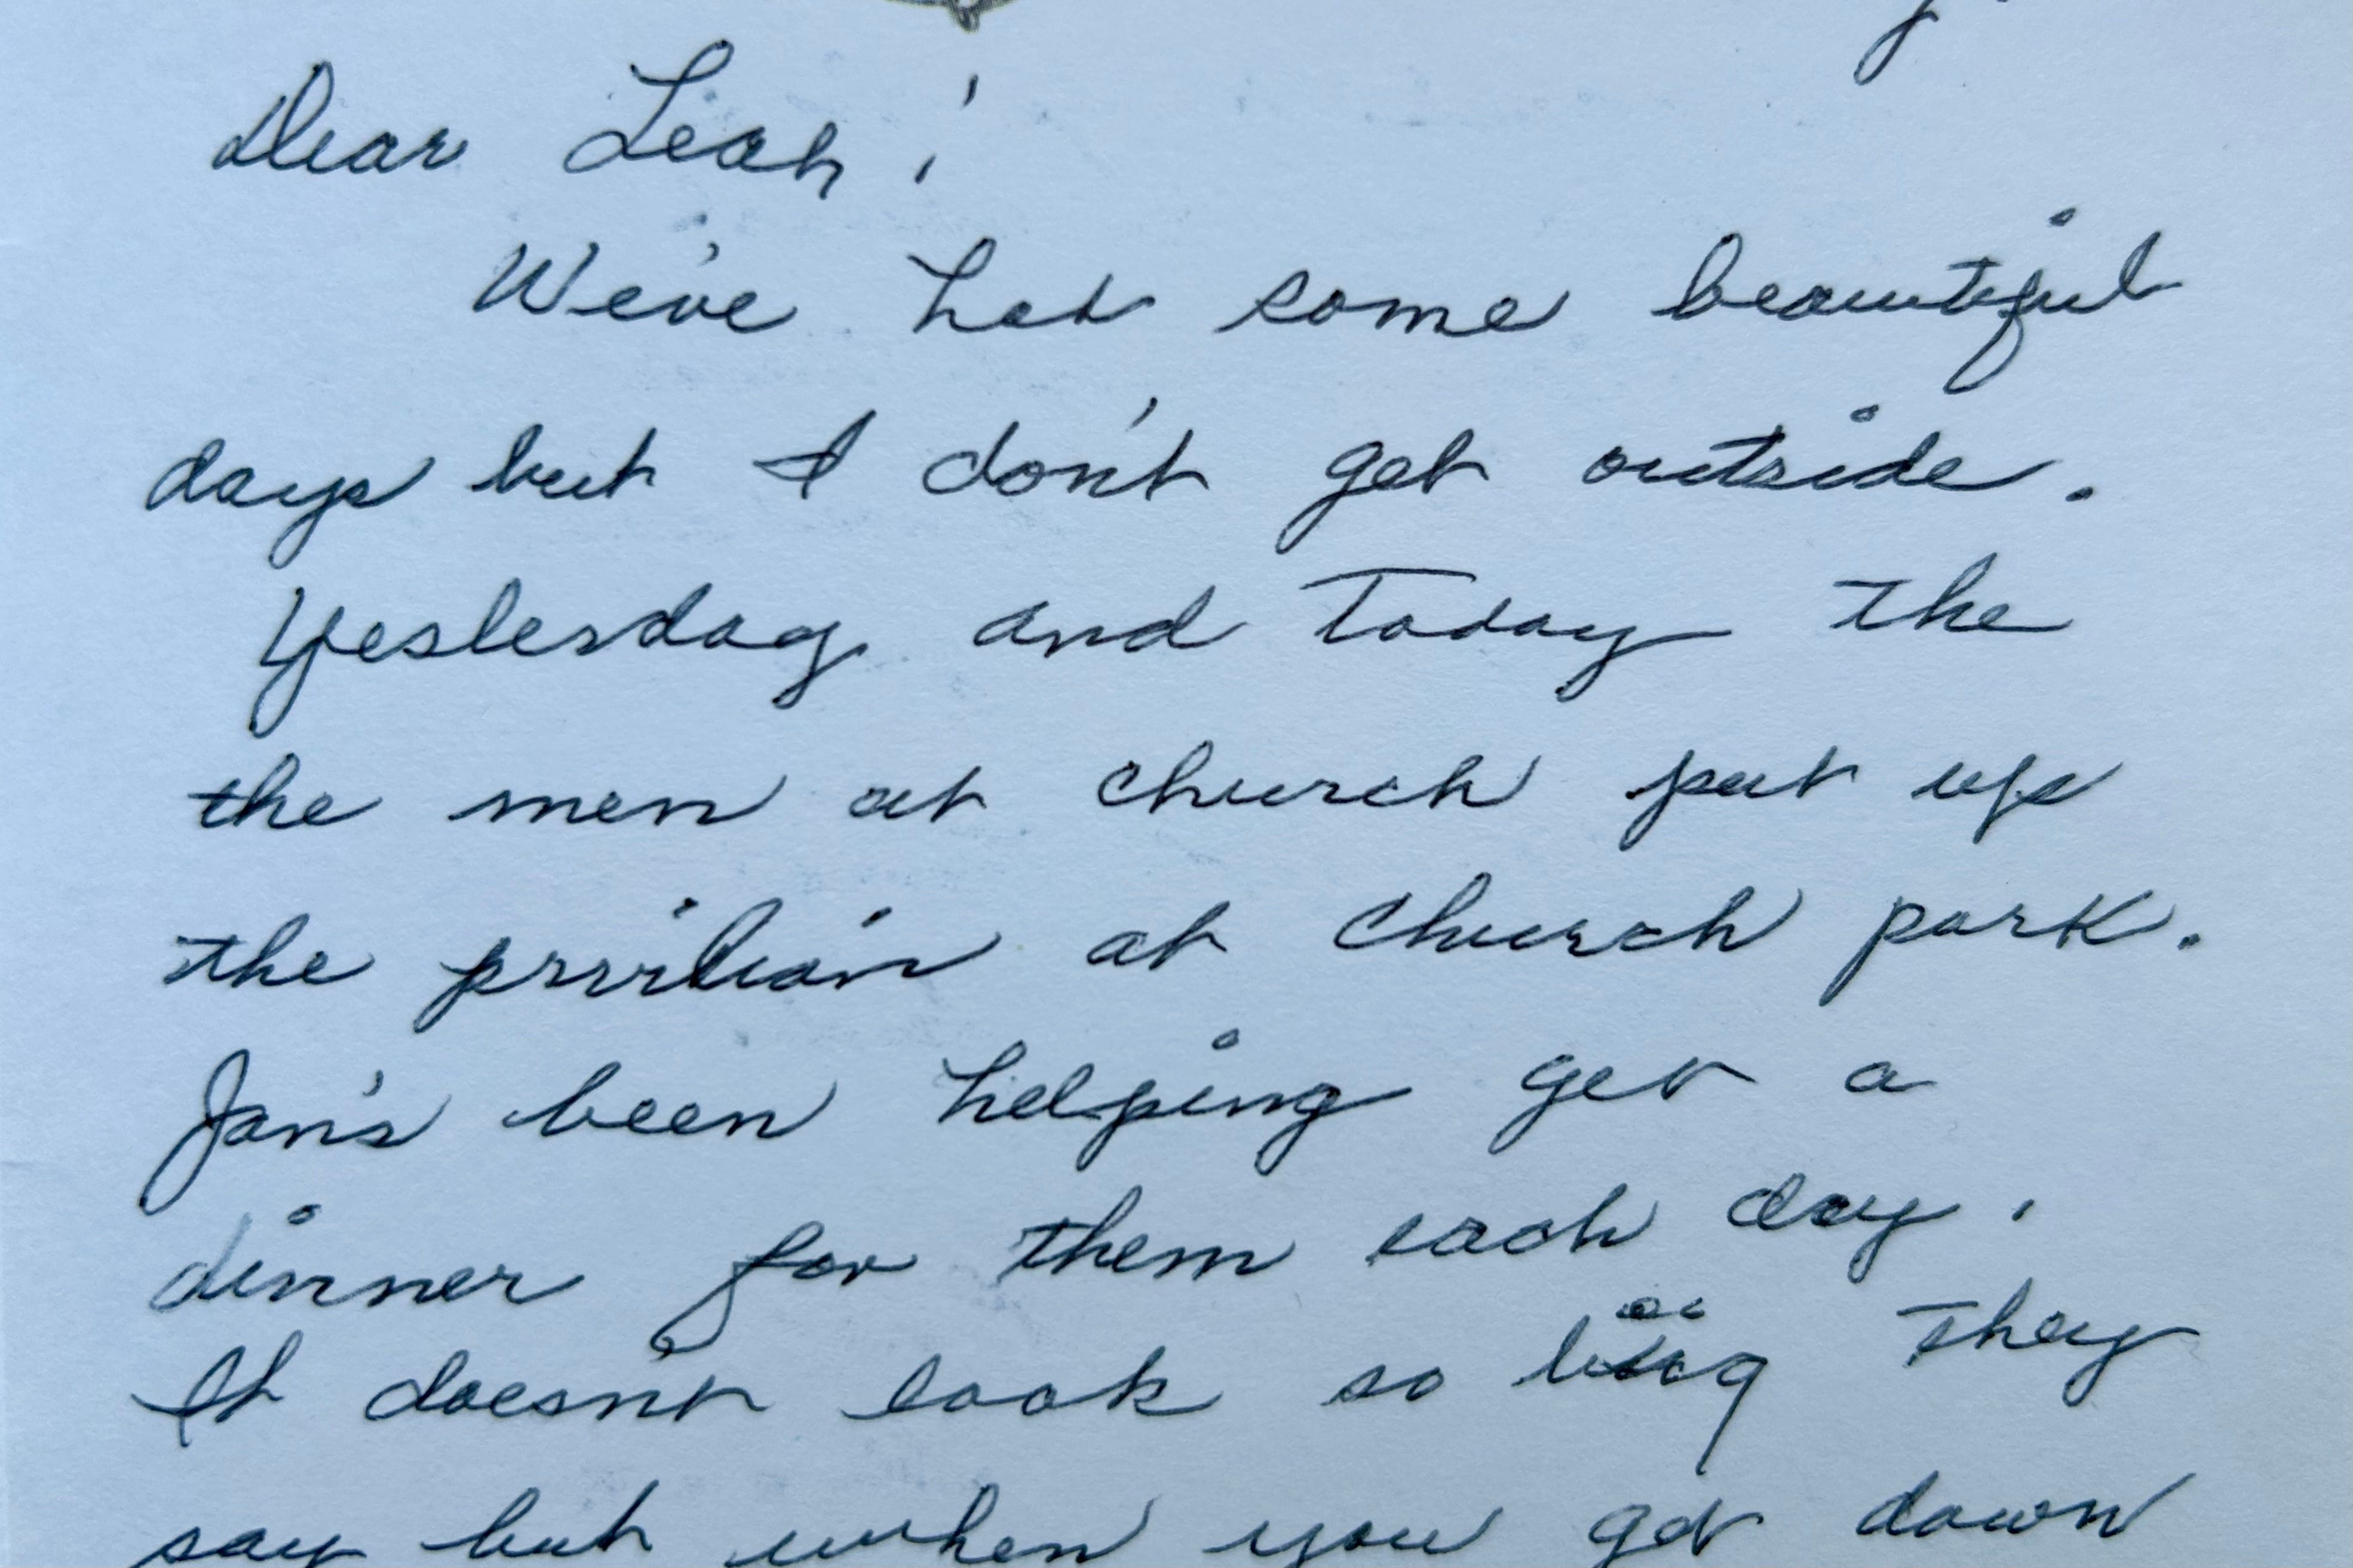 Dear Leah;
We've had some beautiful
days but I don't get outside.
Yesterday and Today the
the men at church put up
the at church park.
Jan's been helping get a
dinner for them each day.
It doesn't look so big They
say but when you get down